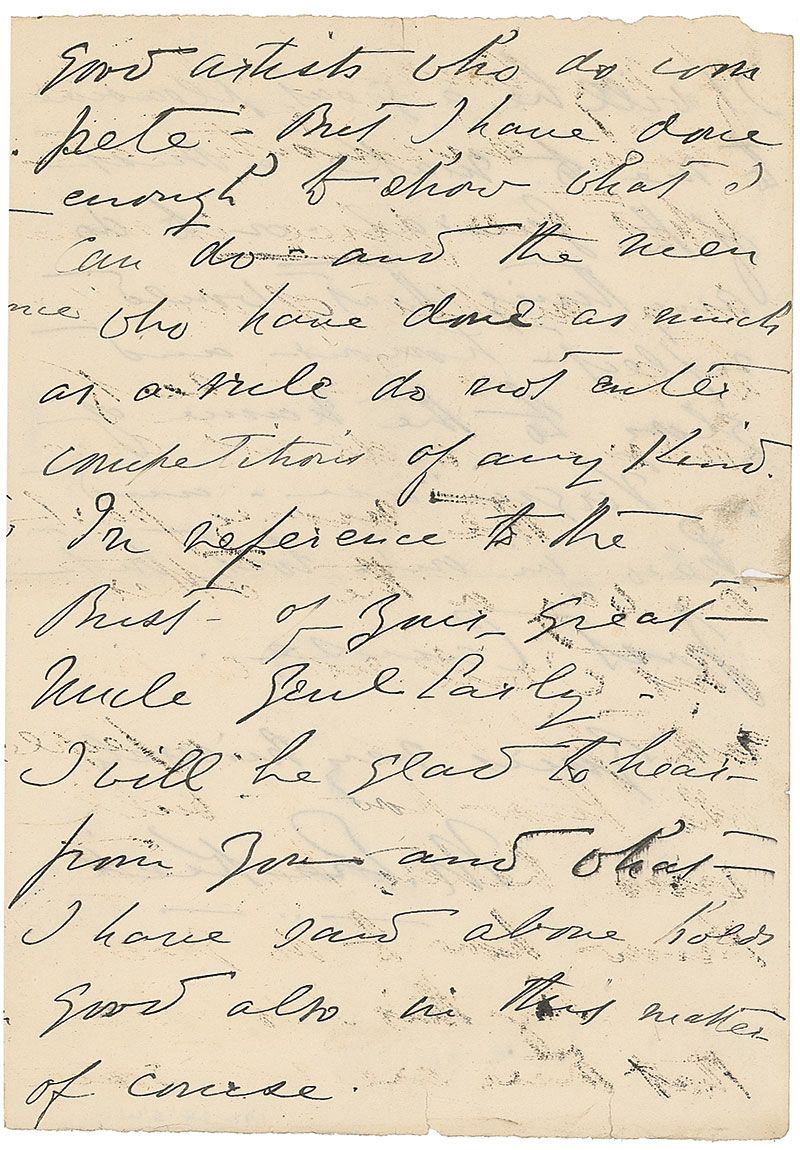 good artists who do com
pete - But I have done
enough to show what I
can do - and the men
who have done as much
as a rule do not enter
competitions of any kind.
In reference to the
Bust - of your great
Uncle Genl Early -
I will be glad to hear
from you and what
I have said above holds
good also in this matter
of course.